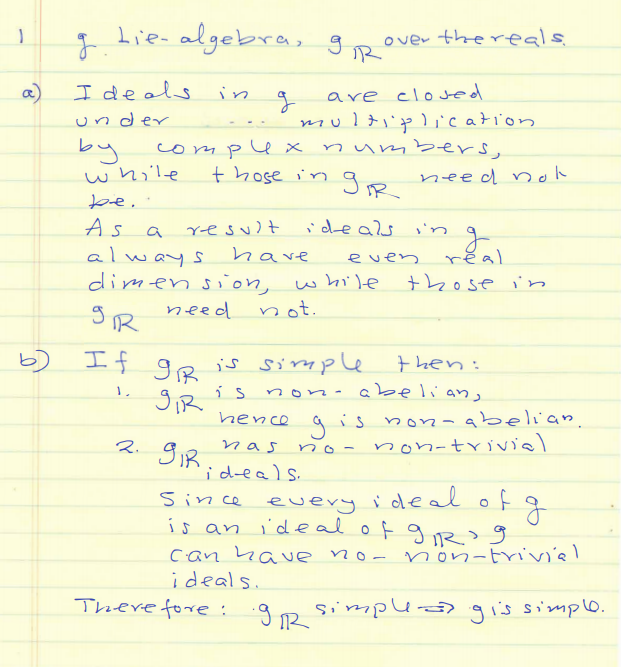 1 g Lie-algebra, gℝ over the reals.
a) Ideals in g are closed
under --- multiplication
by complex numbers,
while those in gℝ need not
be.
As a result ideals in g
always have even real
dimension, while those in
gℝ need not.
b) If gℝ is simple then:
1. gℝ is non-abelian,
hence g is non-abelian.
2. gℝ has no- non-trivial
ideals.
Since every ideal of g
is an ideal of gℝ, g
can have no- non-trivial
ideals.
Therefore: gℝ simple ⇒ g is simple.